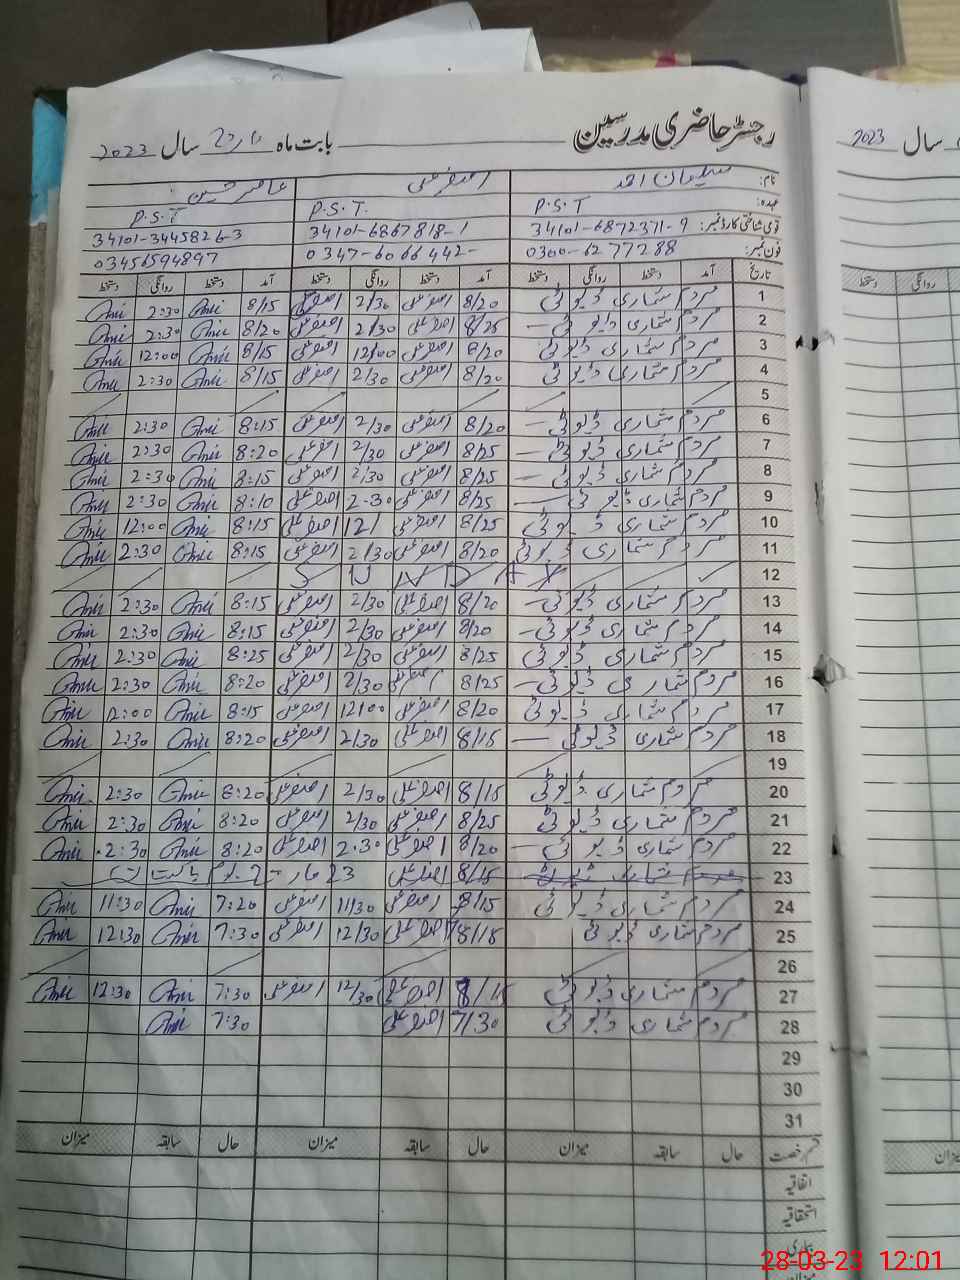 رجسٹر حاضری مدرسین بابت ماہ مارچ سال 2023
سال 2023
نام: سلیمان احمد اصغر علی عامر حسین
عہدہ: P.S.T P.S.T. P.S.T
قومی شناختی کارڈ نمبر: 34101-6872371-9 34101-6867818-1 34101-3445826-3
فون نمبر: 0300-6277288 0347-6066442- 03456594897
تاریخ آمد دستخط روانگی دستخط آمد دستخط روانگی دستخط آمد دستخط روانگی دستخط
1 مردم شماری ڈیوٹی 8/20 اصغر علی 2/30 اصغر علی 8/15 Amir 2:30 Amir
2 مردم شماری ڈیوٹی 8/25 اصغر علی 2/30 اصغر علی 8/20 Amir 2:30 Amir
3 مردم شماری ڈیوٹی 8/20 اصغر علی 12/00 اصغر علی 8/15 Amir 12:00 Amir
4 مردم شماری ڈیوٹی 8/20 اصغر علی 2/30 اصغر علی 8/15 Amir 2:30 Amir
5
6 مردم شماری ڈیوٹی 8/20 اصغر علی 2/30 اصغر علی 8:15 Amir 2:30 Amir
7 مردم شماری ڈیوٹی 8/25 اصغر علی 2/30 اصغر علی 8:20 Amir 2:30 Amir
8 مردم شماری ڈیوٹی 8/25 اصغر علی 2/30 اصغر علی 8:15 Amir 2:30 Amir
9 مردم شماری ڈیوٹی 8/25 اصغر علی 2-30 اصغر علی 8:10 Amir 2:30 Amir
10 مردم شماری ڈیوٹی 8/25 اصغر علی 12/ اصغر علی 8:15 Amir 12:00 Amir
11 مردم شماری ڈیوٹی 8/20 اصغر علی 2/30 اصغر علی 8:15 Amir 2:30 Amir
12 SUNDAY
13 مردم شماری ڈیوٹی 8/20 اصغر علی 2/30 اصغر علی 8:15 Amir 2:30 Amir
14 مردم شماری ڈیوٹی 8/20 اصغر علی 2/30 اصغر علی 8:15 Amir 2:30 Amir
15 مردم شماری ڈیوٹی 8/25 اصغر علی 2/30 اصغر علی 8:25 Amir 2:30 Amir
16 مردم شماری ڈیوٹی 8/25 اصغر علی 2/30 اصغر علی 8:20 Amir 2:30 Amir
17 مردم شماری ڈیوٹی 8/20 اصغر علی 12/00 اصغر علی 8:15 Amir 12:00 Amir
18 مردم شماری ڈیوٹی 8/15 اصغر علی 2/30 اصغر علی 8:20 Amir 2:30 Amir
19
20 مردم شماری ڈیوٹی 8/15 اصغر علی 2/30 اصغر علی 8:20 Amir 2:30 Amir
21 مردم شماری ڈیوٹی 8/25 اصغر علی 2/30 اصغر علی 8:20 Amir 2:30 Amir
22 مردم شماری ڈیوٹی 8/20 اصغر علی 2.30 اصغر علی 8:20 Amir 2:30 Amir
23 مردم شماری ڈیوٹی 8/15 اصغر علی 23 مارچ یوم پاکستان
24 مردم شماری ڈیوٹی 8/15 اصغر علی 11/30 اصغر علی 7:20 Amir 11:30 Amir
25 مردم شماری ڈیوٹی 8/15 اصغر علی 12/30 اصغر علی 7:30 Amir 12:30 Amir
26
27 مردم شماری ڈیوٹی 8/15 اصغر علی 12/30 اصغر علی 7:30 Amir 12:30 Amir
28 مردم شماری ڈیوٹی 7/30 اصغر علی 7:30 Amir
29
30
31
قسم رخصت حال سابقہ میزان حال سابقہ میزان حال سابقہ میزان
اتفاقیہ
استحقاقیہ
بیماری
میزان
28-03-23 12:01